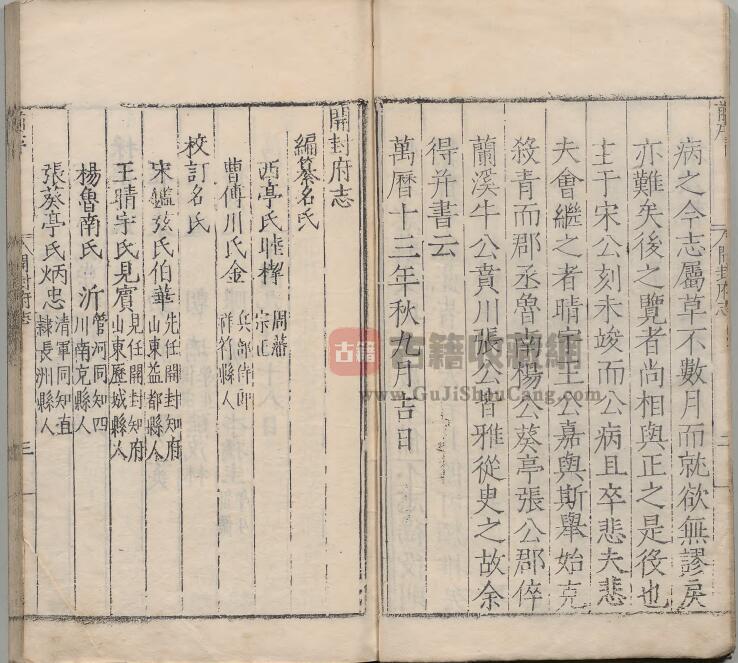 病之今志屬草不數月而就欲無謬戾
亦難矣後之覽者尚相與正之是役也
主于宋公刻未竣而公病且卒悲夫悲
夫會繼之者晴宇王公嘉與斯舉始克
殺青而郡丞魯南楊公葵亭張公郡倅
蘭溪牛公賁川張公皆雅從史之故余
得并書云
萬曆十三年秋九月吉日
開封府志
編纂名氏
西亭氏睦㮮 周藩宗正
曹傅川氏金 兵部侍郎祥符縣人
校訂名氏
宋鑑弦氏伯華 先任開封知府山東益都縣人
王晴宇氏見賓 見任開封知府山東歷城縣人
楊魯南氏沂 管河同知四川南充縣人
張葵亭氏炳忠 清軍同知直隸長洲縣人
開封府志
三
古籍
古籍收藏網
www.GuJiShouCang.com